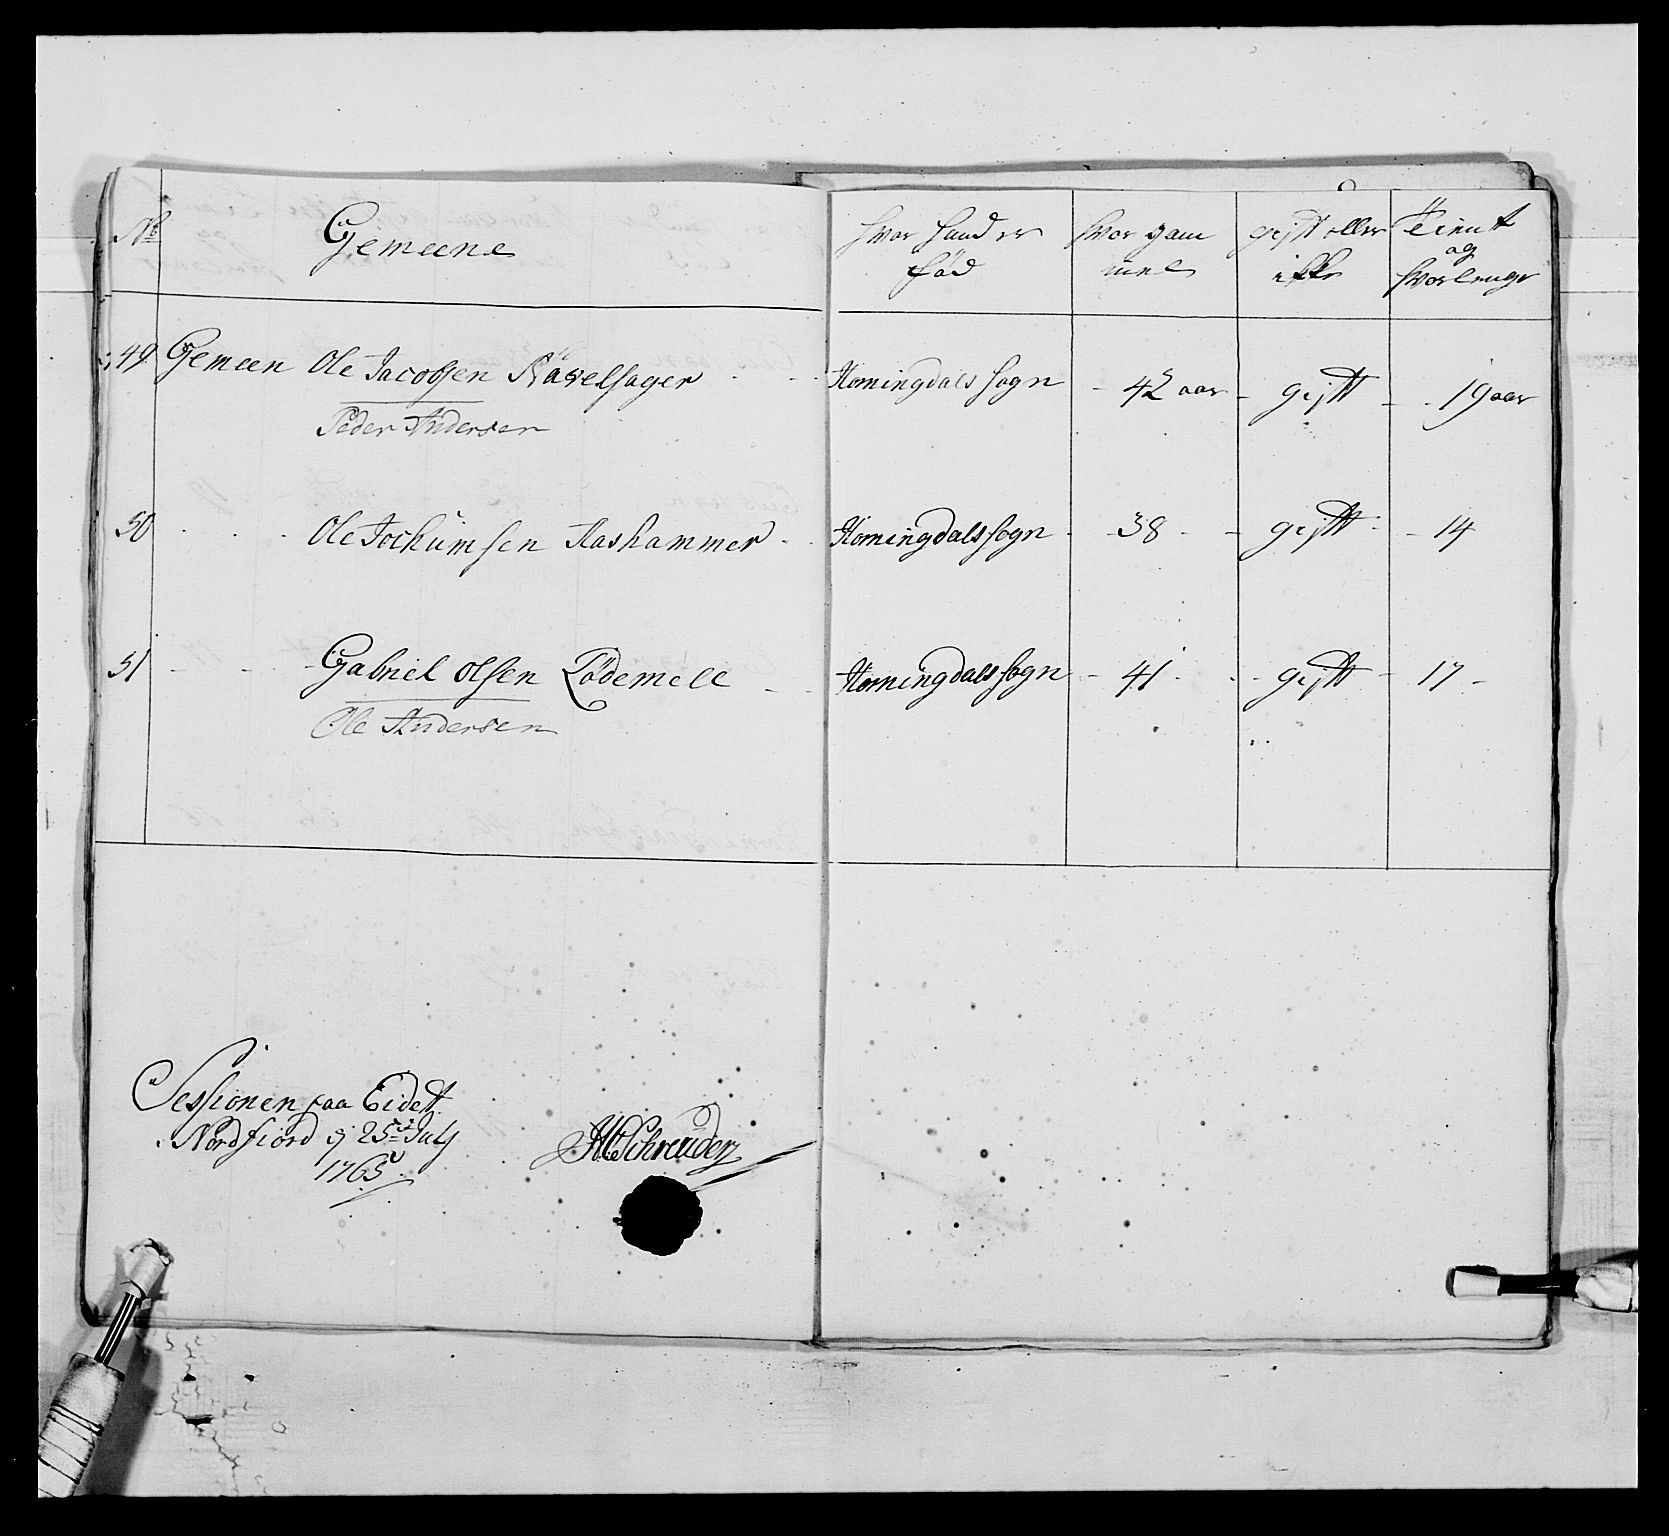 No Gemeene hvor hand er hvor gam gift eller Tient
fød mel ikke og
hvorlenge
49 Gemeen Ole Jacobsen Navelsager Horningdals sogn 42 aar gift 19 aar
Peder Andersen
50 Ole Jochumsen Aashammer Horningdals sogn 38 gift 14
51 Gabriel Olsen Lødemell Horningdals sogn 41 gift 17
Ole Andersen
Sessionen paa Eidet
i Nordfiord d 25de July
1765
Schreuder